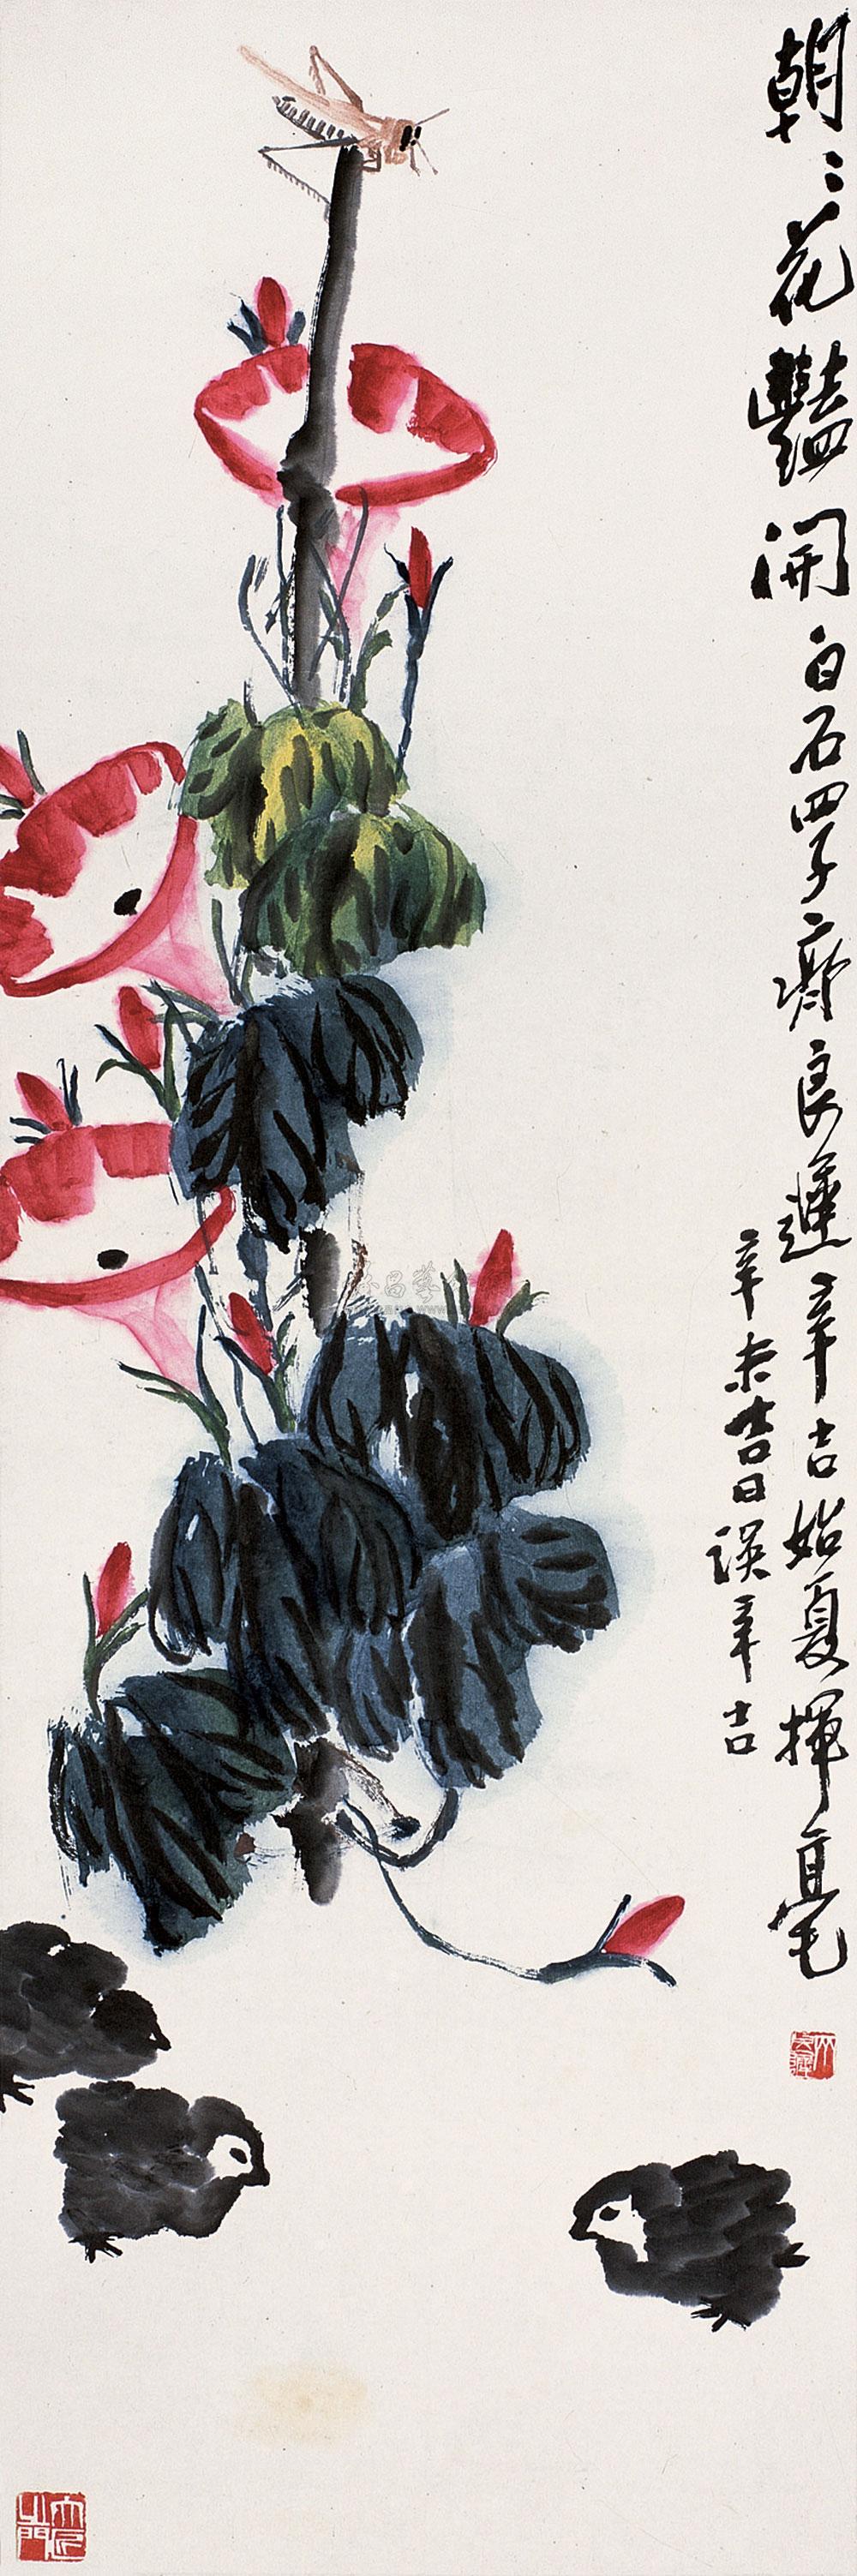 朝〻花豔開
白石四子齊良遲辛吉始夏揮毫
辛未吉日誤辛吉